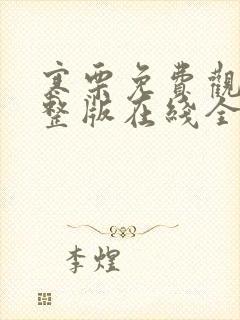 寒栗免費觀
整版在綫全
李煌